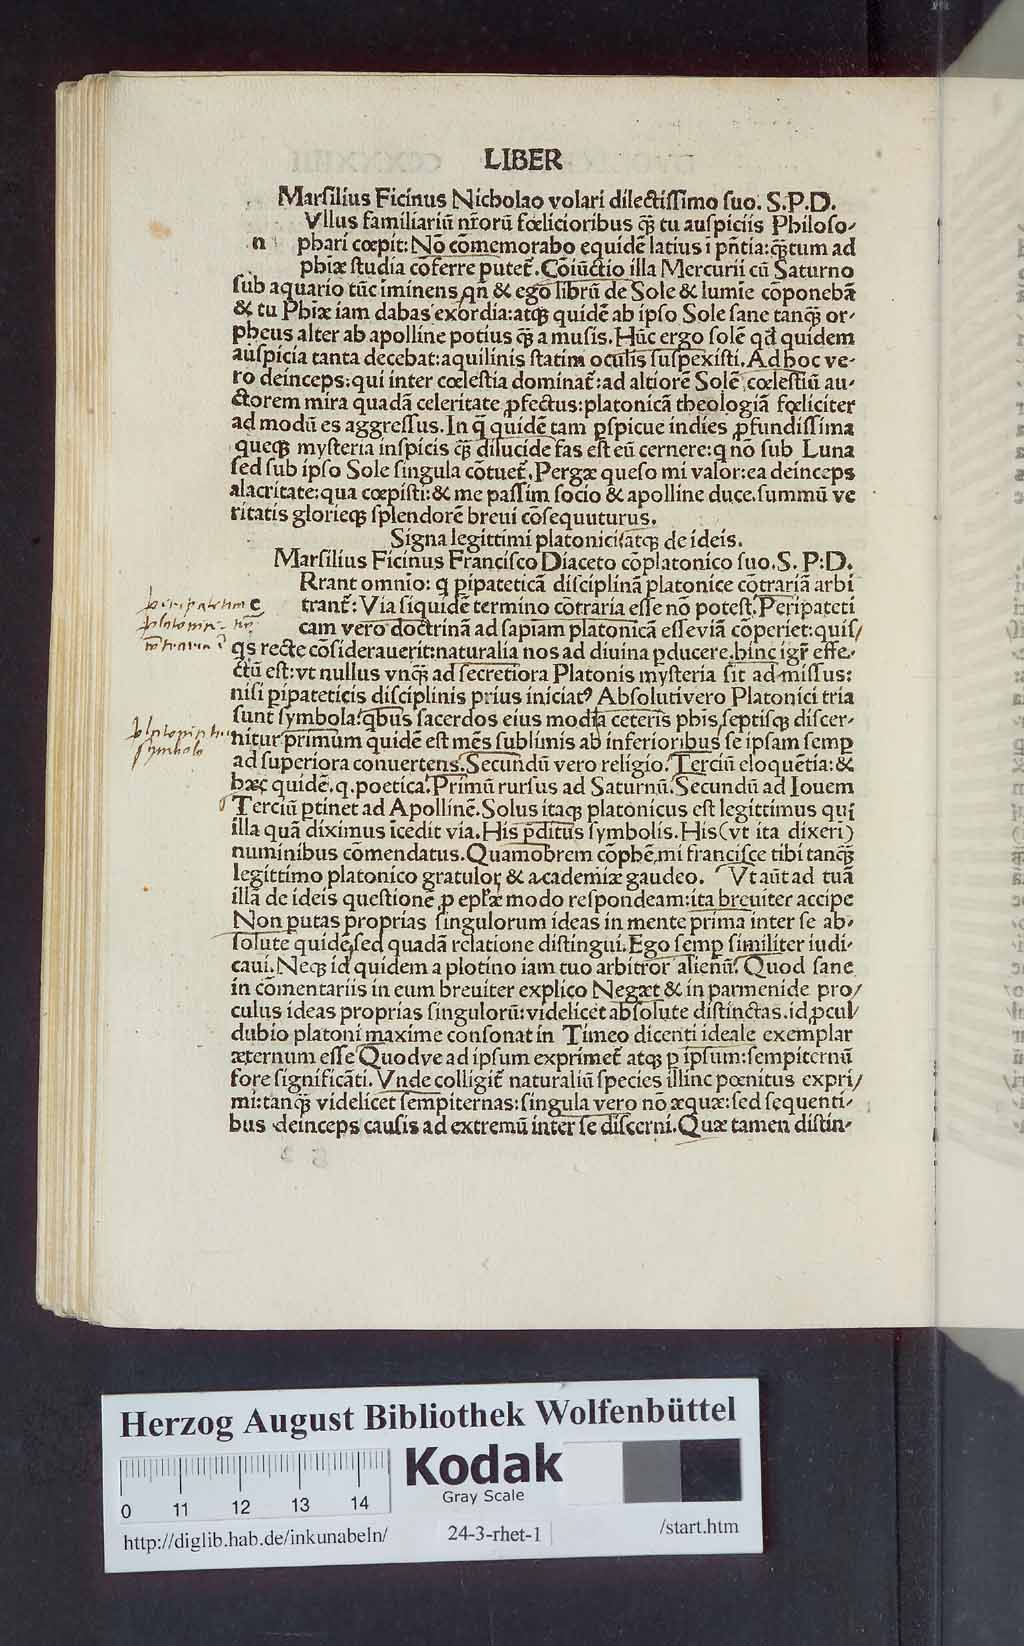 LIBER
Marſilius Ficinus Nicholao volari dilectiſſimo ſuo. S.P.D.
Vllus familiariū nr̄orū fœlicioribus q̄ꝫ tu auſpiciis Philoſo-
n phari cœpit: Nō cōmemorabo equidē latius ī pn̄tia: q̄ꝫtum ad
phiæ ſtudia cōferre putet̄. Cōiūctio illa Mercurii cū Saturno
ſub aquario tūc iminens, qn̄ & ego librū de Sole & lumīe cōponebā
& tu Phiæ iam dabas exordia: atqꝫ quidē ab ipſo Sole ſane tanq̄ꝫ or-
pheus alter ab apolline potius q̄ꝫ a muſis. Hūc ergo ſolē qd̄ quidem
auſpicia tanta decebat: aquilinis ſtatim oculis ſuſpexiſti. Ad hoc ve-
ro deinceps: qui inter cœleſtia dominat̄: ad altiorē Solē cœleſtiū au-
ctorem mira quadā celeritate ꝓfectus: platonicā theologiā fœliciter
ad modū es aggreſſus. In q̄ quidē tam ꝑſpicue indies ꝓfundiſſima
queqꝫ myſteria inſpicis q̄ꝫ dilucide fas eſt eū cernere: q nō ſub Luna
ſed ſub ipſo Sole ſingula cōtuet̄. Pergæ queſo mi valor: ea deinceps
alacritate: qua cœpiſti: & me paſſim ſocio & apolline duce. ſummū ve
ritatis glorieqꝫ ſplendorē breui cōſequuturus.
Signa legittimi platonici: atqꝫ de ideis.
Marſilius Ficinus Franciſco Diaceto cōplatonico ſuo. S. P: D.
Rrant omnīo: q ꝑipateticā diſciplinā platonice cōtrariā arbi
e trant̄: Via ſiquidē termino cōtraria eſſe nō poteſt. Peripateti
cam vero doctrinā ad ſapīam platonicā eſſe viā cōperiet: quiſ/
qs recte cōſiderauerit: naturalia nos ad diuina ꝑducere. hinc igr̄ effe-
ctū eſt: vt nullus vnq̄ꝫ ad ſecretiora Platonis myſteria ſit ad miſſus:
niſi ꝑipateticis diſciplinis prius iniciatꝰ Abſoluti vero Platonici tria
ſunt ſymbola: qbus ſacerdos eius modi a ceteris phis, ſeptiſqꝫ diſcer-
nitur primum quidē eſt mēs ſublimis ab inferioribus ſe ipſam ſemꝑ
ad ſuperiora conuertens. Secundū vero religio. Terciū eloquētia: &
hæc quidē. q. poetica. Primū rurſus ad Saturnū. Secundū ad Iouem
Terciū ꝑtinet ad Apollinē. Solus itaqꝫ platonicus eſt legittimus qui
illa quā diximus īcedit via. His p̄ditus ſymbolis. His (vt ita dixeri)
numinibus cōmendatus. Quamobrem cōphē, mi franciſce tibi tanq̄ꝫ
legittimo platonico gratulor, & academiæ gaudeo. Vt aūt ad tuā
illā de ideis queſtionē ꝓ epl̄æ modo reſpondeam: ita breuiter accipe
Non putas proprias ſingulorum ideas in mente prima inter ſe ab-
ſolute quidē, ſed quadā relatione diſtingui. Ego ſemꝑ ſimiliter iudi-
caui. Neqꝫ id quidem a plotino iam tuo arbitror alienū. Quod ſane
in cōmentariis in eum breuiter explico Negæt & in parmenide pro/
culus ideas proprias ſingulorū: videlicet abſolute diſtinctas. id ꝓcul/
dubio platoni maxime conſonat in Timeo dicenti ideale exemplar
æternum eſſe Quodve ad ipſum exprimet̄ atqꝫ ꝑ ipſum: ſempiternū
fore ſignificāti. Vnde colligit̄ naturaliū ſpecies illinc pœnitus expri/
mi: tanq̄ꝫ videlicet ſempiternas: ſingula vero nō æquæ: ſed ſequenti-
bus deinceps cauſis ad extremū inter ſe diſcerni. Quæ tamen diſtin-
Herzog August Bibliothek Wolfenbüttel
Kodak
Gray Scale
0 11 12 13 14
http://diglib.hab.de/inkunabeln/ 24-3-rhet-1 /start.htm